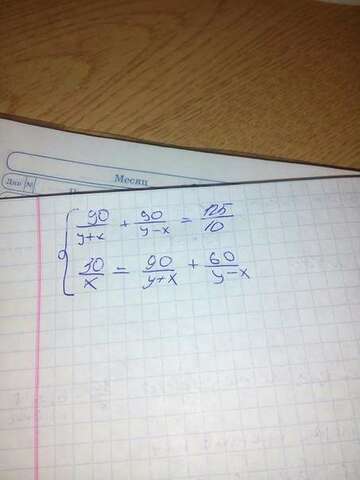 Месяц
Дни №
90/(y+x) + 90/(y-x) = 125/10
30/x = 90/(y+x) + 60/(y-x)